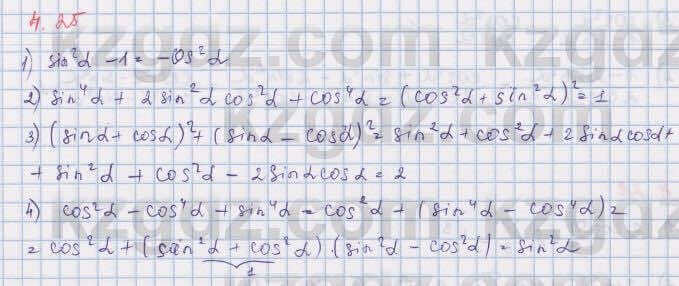 4.25
1) sin²α - 1 = -cos²α
2) sin⁴α + 2sin²α cos²α + cos⁴α = (cos²α + sin²α)² = 1
3) (sinα + cosα)² + (sinα - cosα)² = sin²α + cos²α + 2sinαcosα +
+ sin²α + cos²α - 2sinαcosα = 2
4) cos²α - cos⁴α + sin⁴α = cos²α + (sin⁴α - cos⁴α) =
= cos²α + (sin²α + cos²α) · (sin²α - cos²α) = sin²α
1